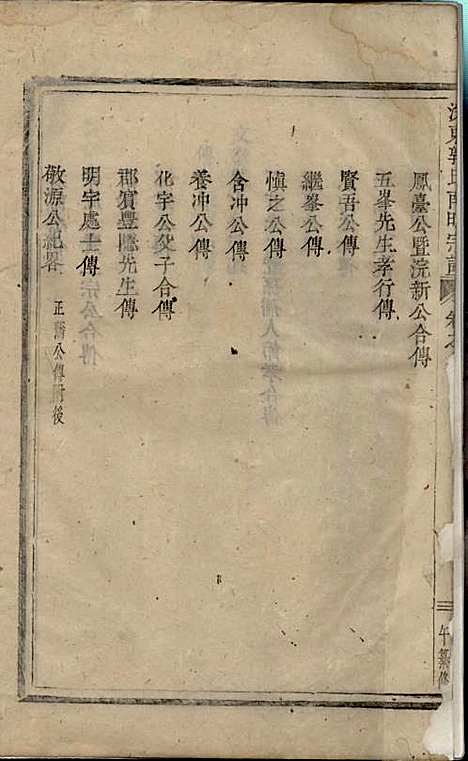 鳳臺公暨浣新公合傳
五峯先生孝行傳
賢吾公傳
繼峯公傳
慎之公傳
含冲公傳
養冲公傳
化宇公父子合傳
郡賓豐隱先生傳
明宇處士傳
敬源公紀畧 正 公傳附後
午纂修